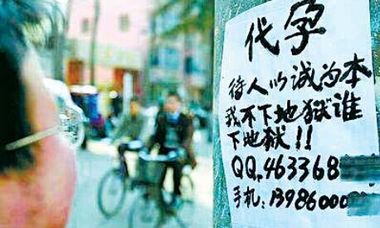 代孕
待人以诚为本
我不下地狱谁
下地狱!!
QQ.463368
手机:13986000